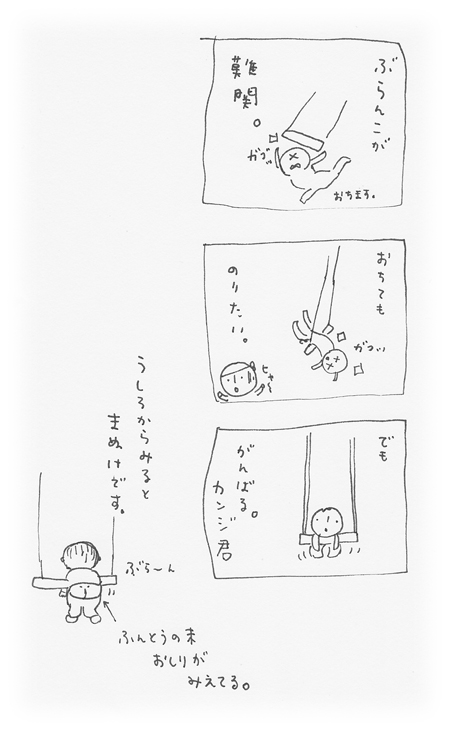 ぶらんこが
難関。
ガツッ
おちます。
おちても
のりたい。
ガツッ
ヒャ～
でも
がんばる。
カンジ君
うしろからみると
まぬけです。
ぶら～ん
ふんとうの末
おしりが
みえてる。